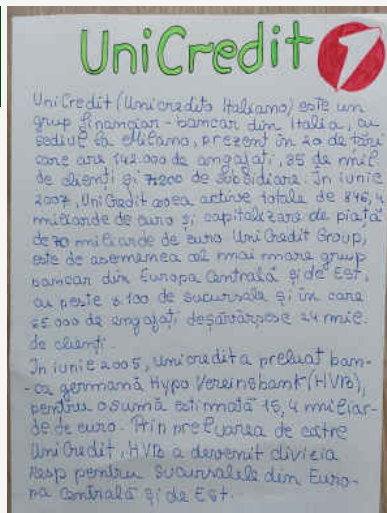 UniCredit 1
UniCredit (Unicredito Italiano) este un
grup financiar-bancar din Italia, cu
sediul la Milano, prezent în 20 de țări
care are 142.000 de angajați, 35 de mil
de clienți și 7.200 de subsidiare. În iunie
2007, UniCredit avea active totale de 846,4
miliarde de euro și capitalizare de piață
de 70 miliarde de euro. UniCredit Group,
este de asemenea cel mai mare grup
bancar din Europa Centrală și de Est,
cu peste 3.100 de sucursale și în care
65.000 de angajați 24 mil.
de clienți.
În iunie 2005, Unicredit a preluat ban-
-ca germană Hypo Vereinsbank (HVB),
pentru o sumă estimată 15,4 miliar-
de de euro. Prin preluarea de către
UniCredit, HVB a devenit divizia
resp pentru sucursalele din Euro-
pa Centrală și de Est.